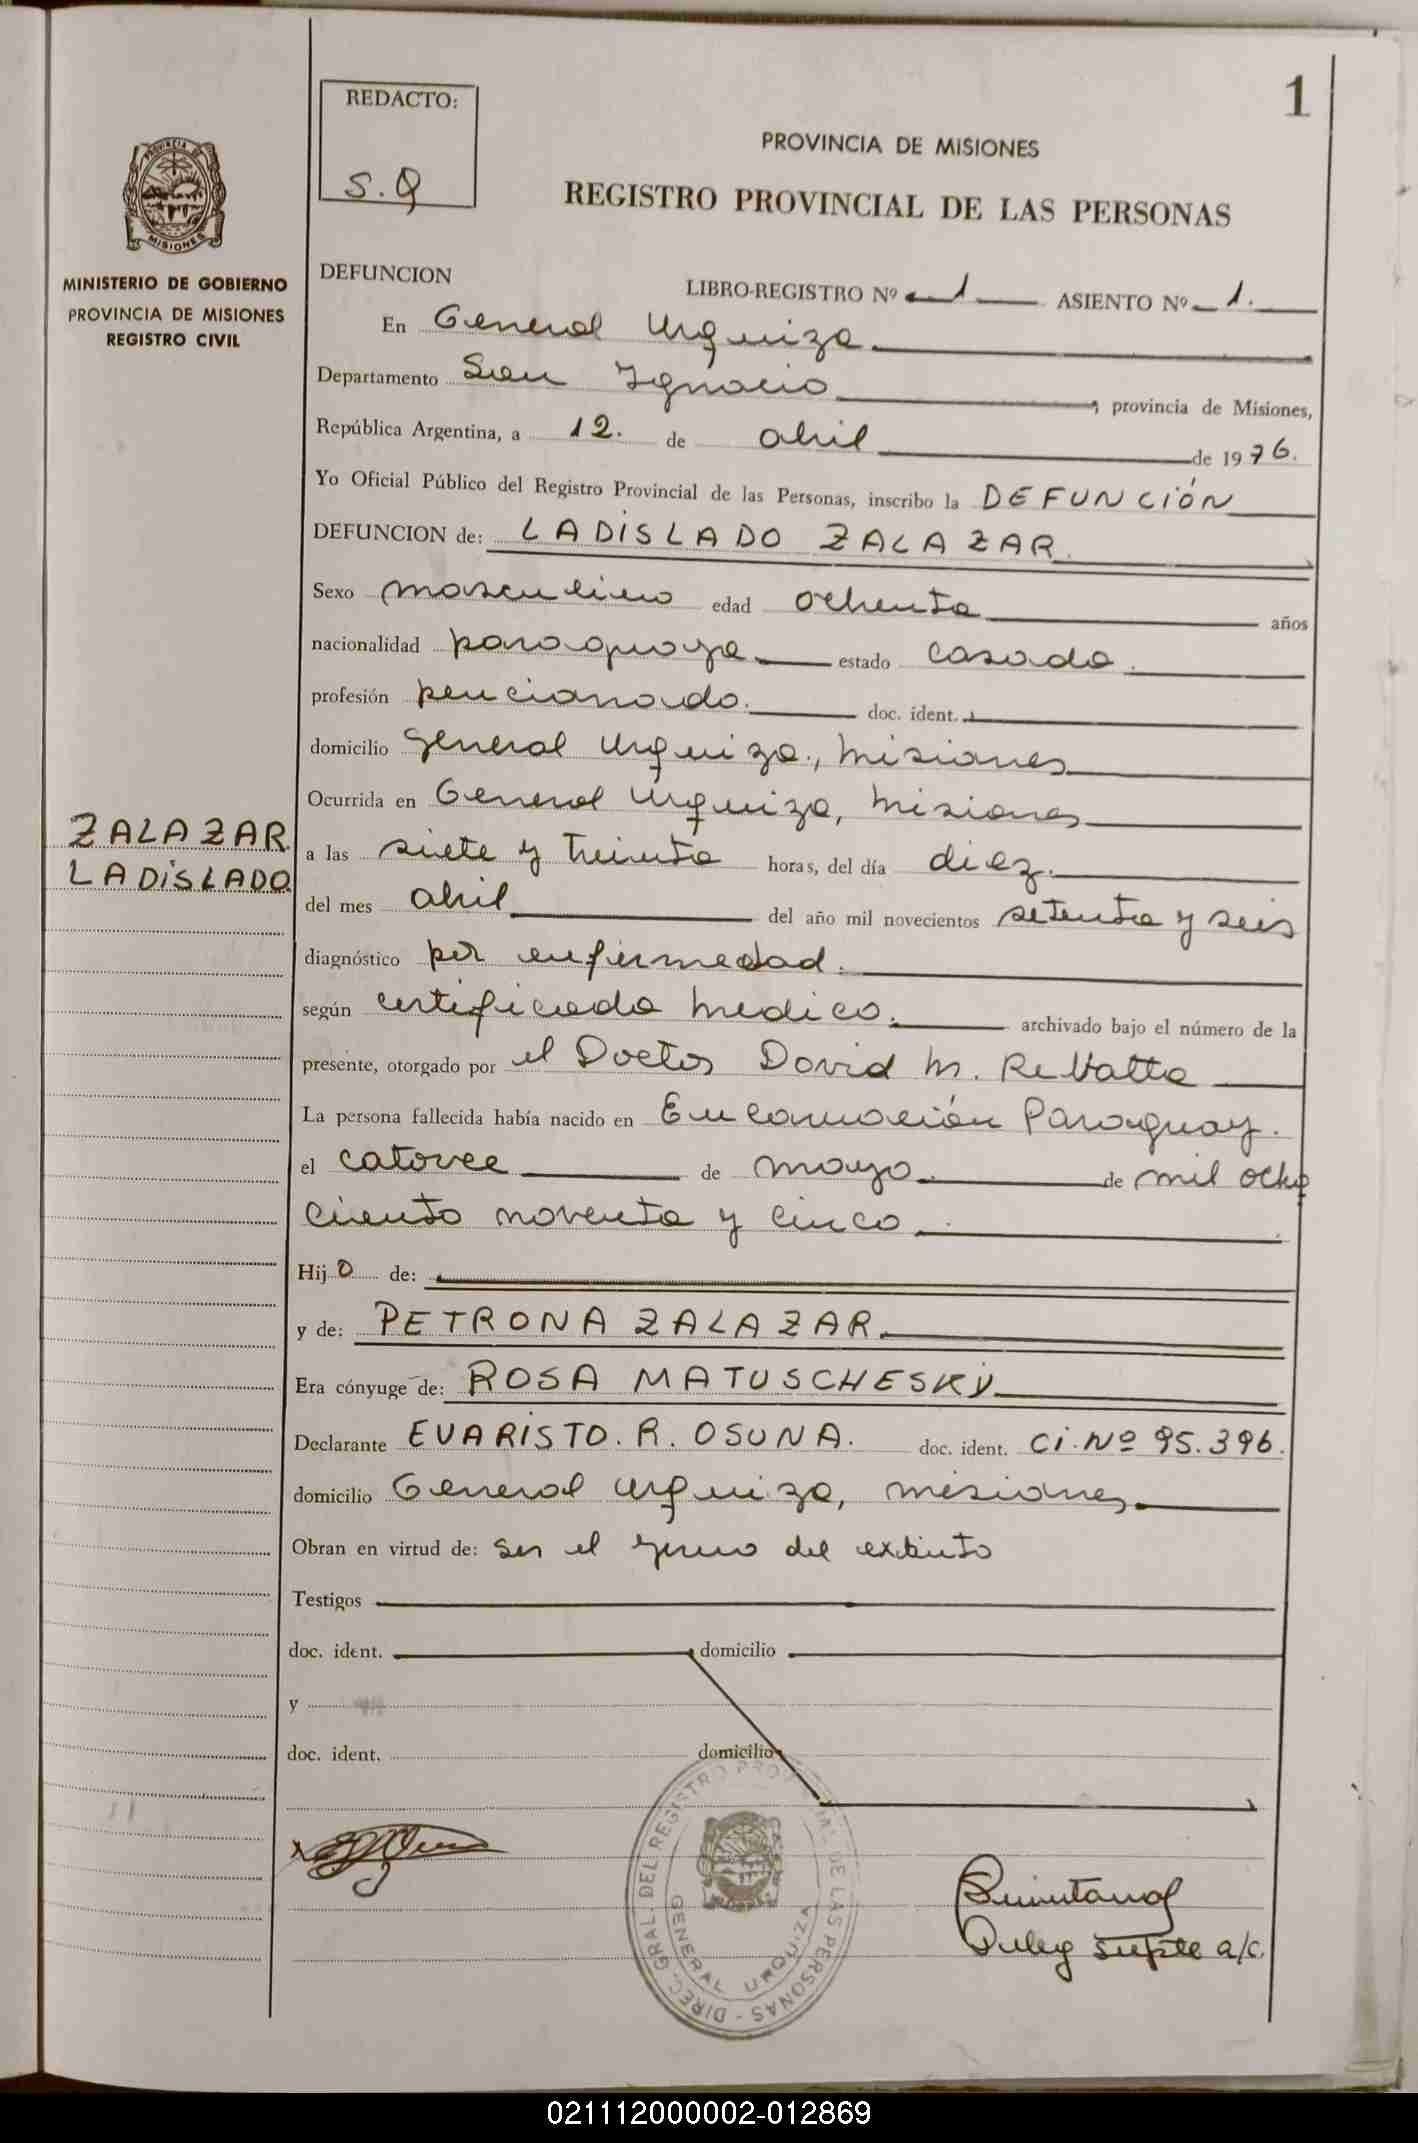 1
REDACTO:
S.Q
PROVINCIA DE MISIONES
REGISTRO PROVINCIAL DE LAS PERSONAS
PROVINCIA DE
MISIONES
MINISTERIO DE GOBIERNO
PROVINCIA DE MISIONES
REGISTRO CIVIL
ZALAZAR
LADISLADO
DEFUNCION
LIBRO-REGISTRO Nº 1 ASIENTO Nº 1.
En General Urquiza
Departamento San Ignacio, provincia de Misiones,
República Argentina, a 12. de abril de 1976.
Yo Oficial Público del Registro Provincial de las Personas, inscribo la DEFUNCIÓN
DEFUNCION de: LADISLADO ZALAZAR
Sexo masculino edad ochenta años
nacionalidad paraguaya estado casado.
profesión pencionado. doc. ident.
domicilio General Urquiza, Misiones
Ocurrida en General Urquiza, Misiones
a las siete y treinta horas, del día diez.
del mes abril del año mil novecientos setenta y seis
diagnóstico por enfermedad.
según certificado medico. archivado bajo el número de la
presente, otorgado por el Doctor David M. Rebatta
La persona fallecida había nacido en Encarnación Paraguay.
el catorce de mayo de mil ocho
ciento noventa y cinco.
Hij o de:
y de: PETRONA ZALAZAR.
Era cónyuge de: ROSA MATUSCHESKY
Declarante EVARISTO. R. OSUNA. doc. ident. Ci. Nº 95.396.
domicilio General Urquiza, Misiones
Obran en virtud de: ser el yerno del extinto
Testigos
doc. ident. domicilio
y
doc. ident. domicilio
DIREC. GRAL. DEL REGISTRO PROVINCIAL DE LAS PERSONAS -
GENERAL URQUIZA
Quintana
Deleg Suplte a/c.
021112000002-012869